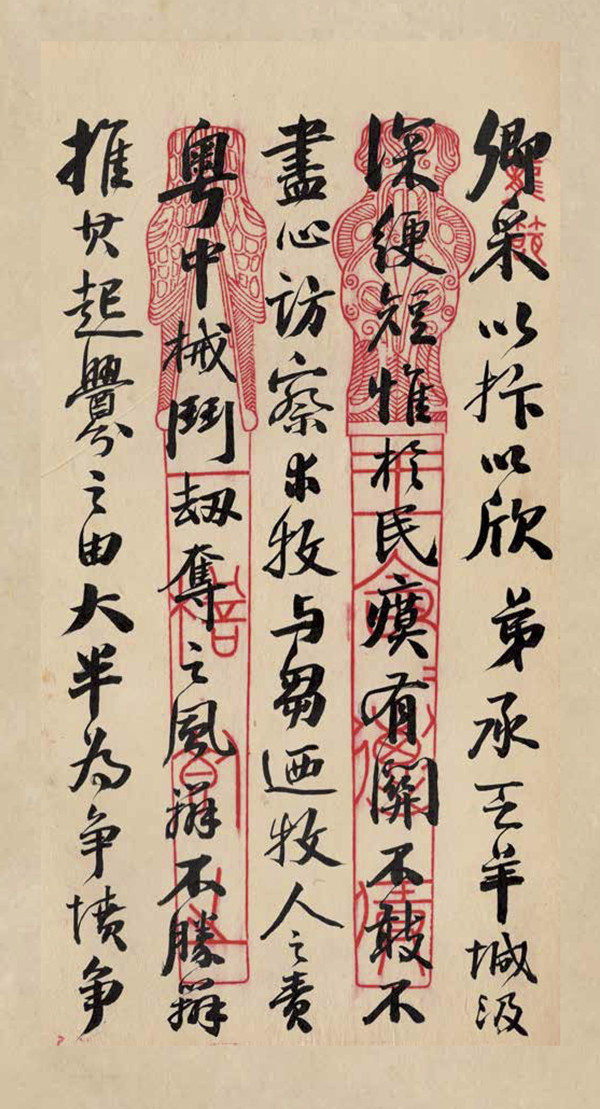 卿采以抃以欣弟承乏羊城汲
深綆短惟於民瘼有關不敢不
盡心訪察求牧与芻迺牧人之責
粤中械鬥刼奪之風辦不勝辦
推其起釁之由大半為争墳争